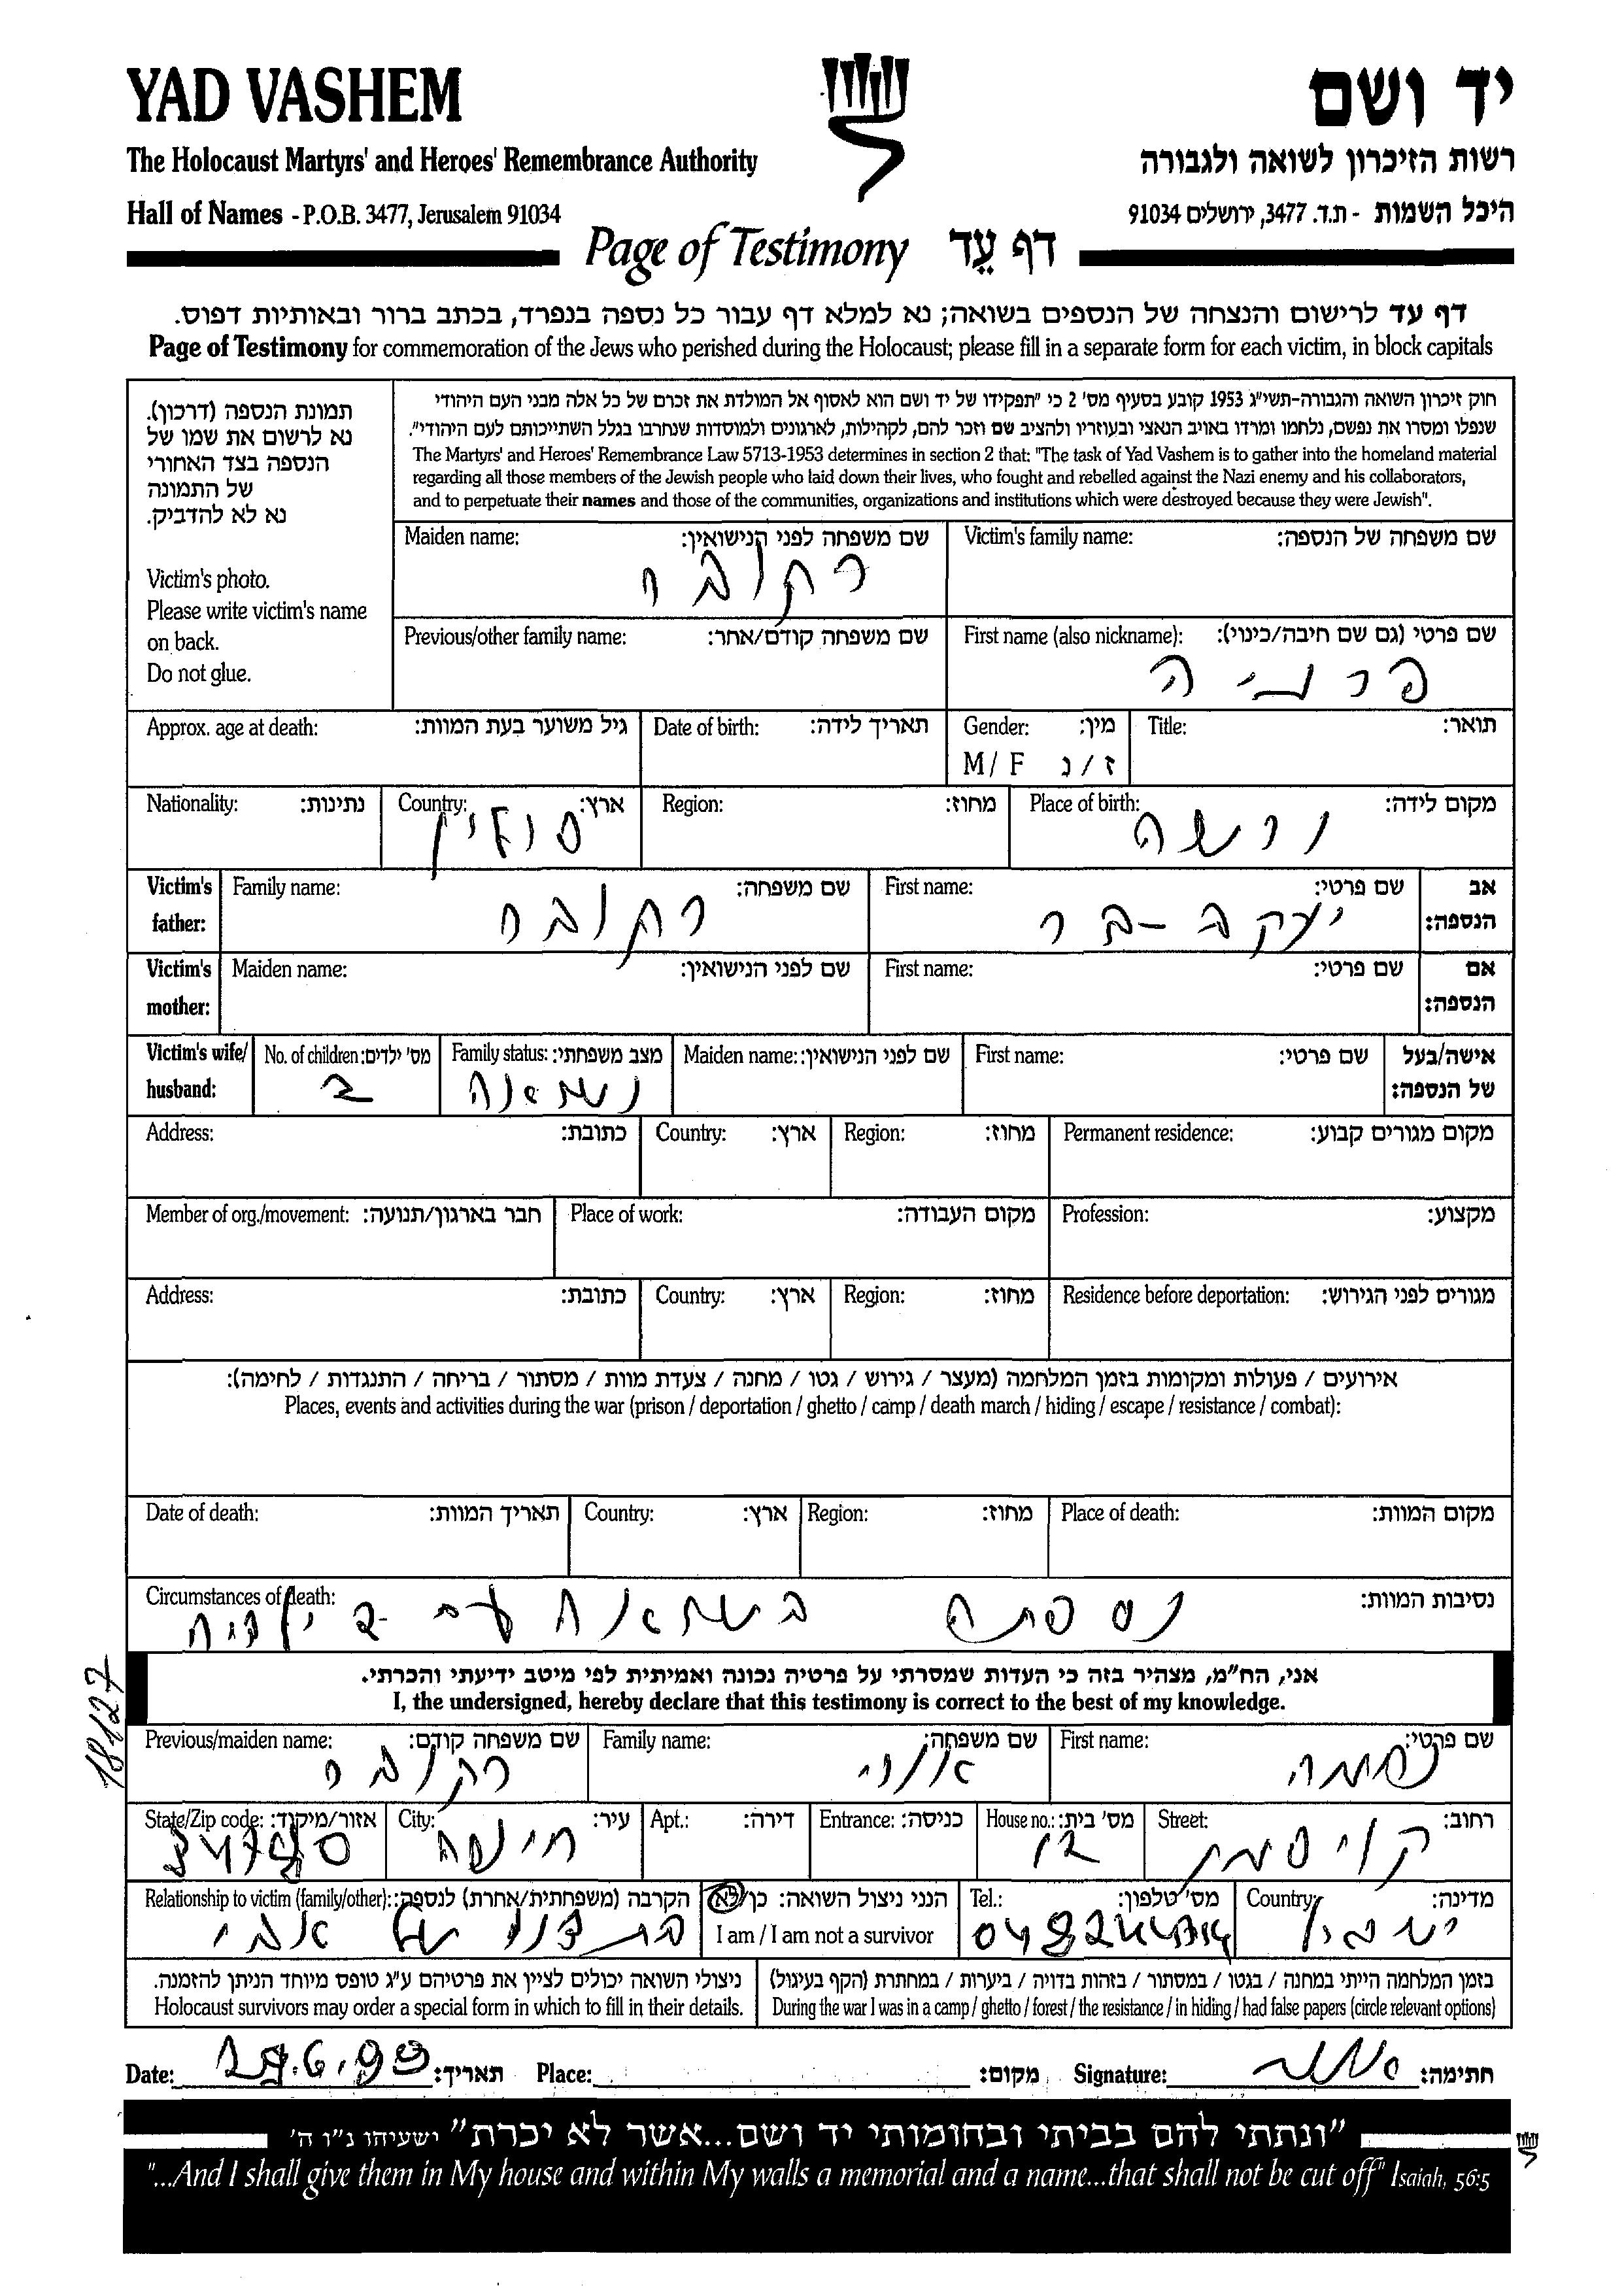 YAD VASHEM
יד ושם
The Holocaust Martyrs' and Heroes' Remembrance Authority
רשות הזיכרון לשואה ולגבורה
Hall of Names - P.O.B. 3477, Jerusalem 91034
היכל השמות - ת.ד. 3477, ירושלים 91034
Page of Testimony דף עֵד
דף עד לרישום והנצחה של הנספים בשואה; נא למלא דף עבור כל נספה בנפרד, בכתב ברור ובאותיות דפוס.
Page of Testimony for commemoration of the Jews who perished during the Holocaust; please fill in a separate form for each victim, in block capitals
תמונת הנספה (דרכון).
נא לרשום את שמו של
הנספה בצד האחורי
של התמונה
נא לא להדביק.
Victim's photo.
Please write victim's name
on back.
Do not glue.
חוק זיכרון השואה והגבורה-תשי"ג 1953 קובע בסעיף מס' 2 כי "תפקידו של יד ושם הוא לאסוף אל המולדת את זכרם של כל אלה מבני העם היהודי
שנפלו ומסרו את נפשם, נלחמו ומרדו באויב הנאצי ובעוזריו ולהציב שם וזכר להם, לקהילות, לארגונים ולמוסדות שנחרבו בגלל השתייכותם לעם היהודי".
The Martyrs' and Heroes' Remembrance Law 5713-1953 determines in section 2 that: "The task of Yad Vashem is to gather into the homeland material
regarding all those members of the Jewish people who laid down their lives, who fought and rebelled against the Nazi enemy and his collaborators,
and to perpetuate their names and those of the communities, organizations and institutions which were destroyed because they were Jewish".
Victim's family name: שם משפחה של הנספה:
Maiden name: שם משפחה לפני הנישואין:
First name (also nickname): שם פרטי (גם שם חיבה/כינוי):
Previous/other family name: שם משפחה קודם/אחר:
Title: תואר:
Gender: מין:
M / F ז / נ
Date of birth: תאריך לידה:
Approx. age at death: גיל משוער בעת המוות:
Place of birth: מקום לידה:
ורשה
Region: מחוז:
Country: ארץ:
פולין
Nationality: נתינות:
אב הנספה:
First name: שם פרטי:
Family name: שם משפחה:
Victim's father:
אם הנספה:
First name: שם פרטי:
Maiden name: שם לפני הנישואין:
Victim's mother:
אישה/בעל של הנספה:
First name: שם פרטי:
Maiden name: שם לפני הנישואין:
Family status: מצב משפחתי:
נשואה
No. of children: מס' ילדים:
2
Victim's wife/ husband:
Permanent residence: מקום מגורים קבוע:
Region: מחוז:
Country: ארץ:
Address: כתובת:
Profession: מקצוע:
Place of work: מקום העבודה:
Member of org./movement: חבר בארגון/תנועה:
Residence before deportation: מגורים לפני הגירוש:
Region: מחוז:
Country: ארץ:
Address: כתובת:
אירועים / פעולות ומקומות בזמן המלחמה (מעצר / גירוש / גטו / מחנה / צעדת מוות / מסתור / בריחה / התנגדות / לחימה):
Places, events and activities during the war (prison / deportation / ghetto / camp / death march / hiding / escape / resistance / combat):
Place of death: מקום המוות:
Region: מחוז:
Country: ארץ:
Date of death: תאריך המוות:
Circumstances of death: נסיבות המוות:
נספתה בשואה עם 2 ילדיה
אני, הח"מ, מצהיר בזה כי העדות שמסרתי על פרטיה נכונה ואמיתית לפי מיטב ידיעתי והכרתי.
I, the undersigned, hereby declare that this testimony is correct to the best of my knowledge.
18127
First name: שם פרטי:
נחמה
Family name: שם משפחה:
Previous/maiden name: שם משפחה קודם:
Street: רחוב:
House no.: מס' בית:
12
Entrance: כניסה:
Apt.: דירה:
City: עיר:
חיפה
State/Zip code: אזור/מיקוד:
Country: מדינה:
ישראל
Tel.: מס' טלפון:
הנני ניצול השואה: כן/לא
I am / I am not a survivor
Relationship to victim (family/other): הקרבה (משפחתית/אחרת) לנספה:
בת דוד של אבי
בזמן המלחמה הייתי במחנה / בגטו / במסתור / בזהות בדויה / ביערות / במחתרת (הקף בעיגול)
During the war I was in a camp / ghetto / forest / the resistance / in hiding / had false papers (circle relevant options)
ניצולי השואה יכולים לציין את פרטיהם ע"ג טופס מיוחד הניתן להזמנה.
Holocaust survivors may order a special form in which to fill in their details.
Date: תאריך: Place: מקום: Signature: חתימה:
"ונתתי להם בביתי ובחומותי יד ושם...אשר לא יכרת" ישעיהו נ"ו ה'
"...And I shall give them in My house and within My walls a memorial and a name...that shall not be cut off" Isaiah, 56:5